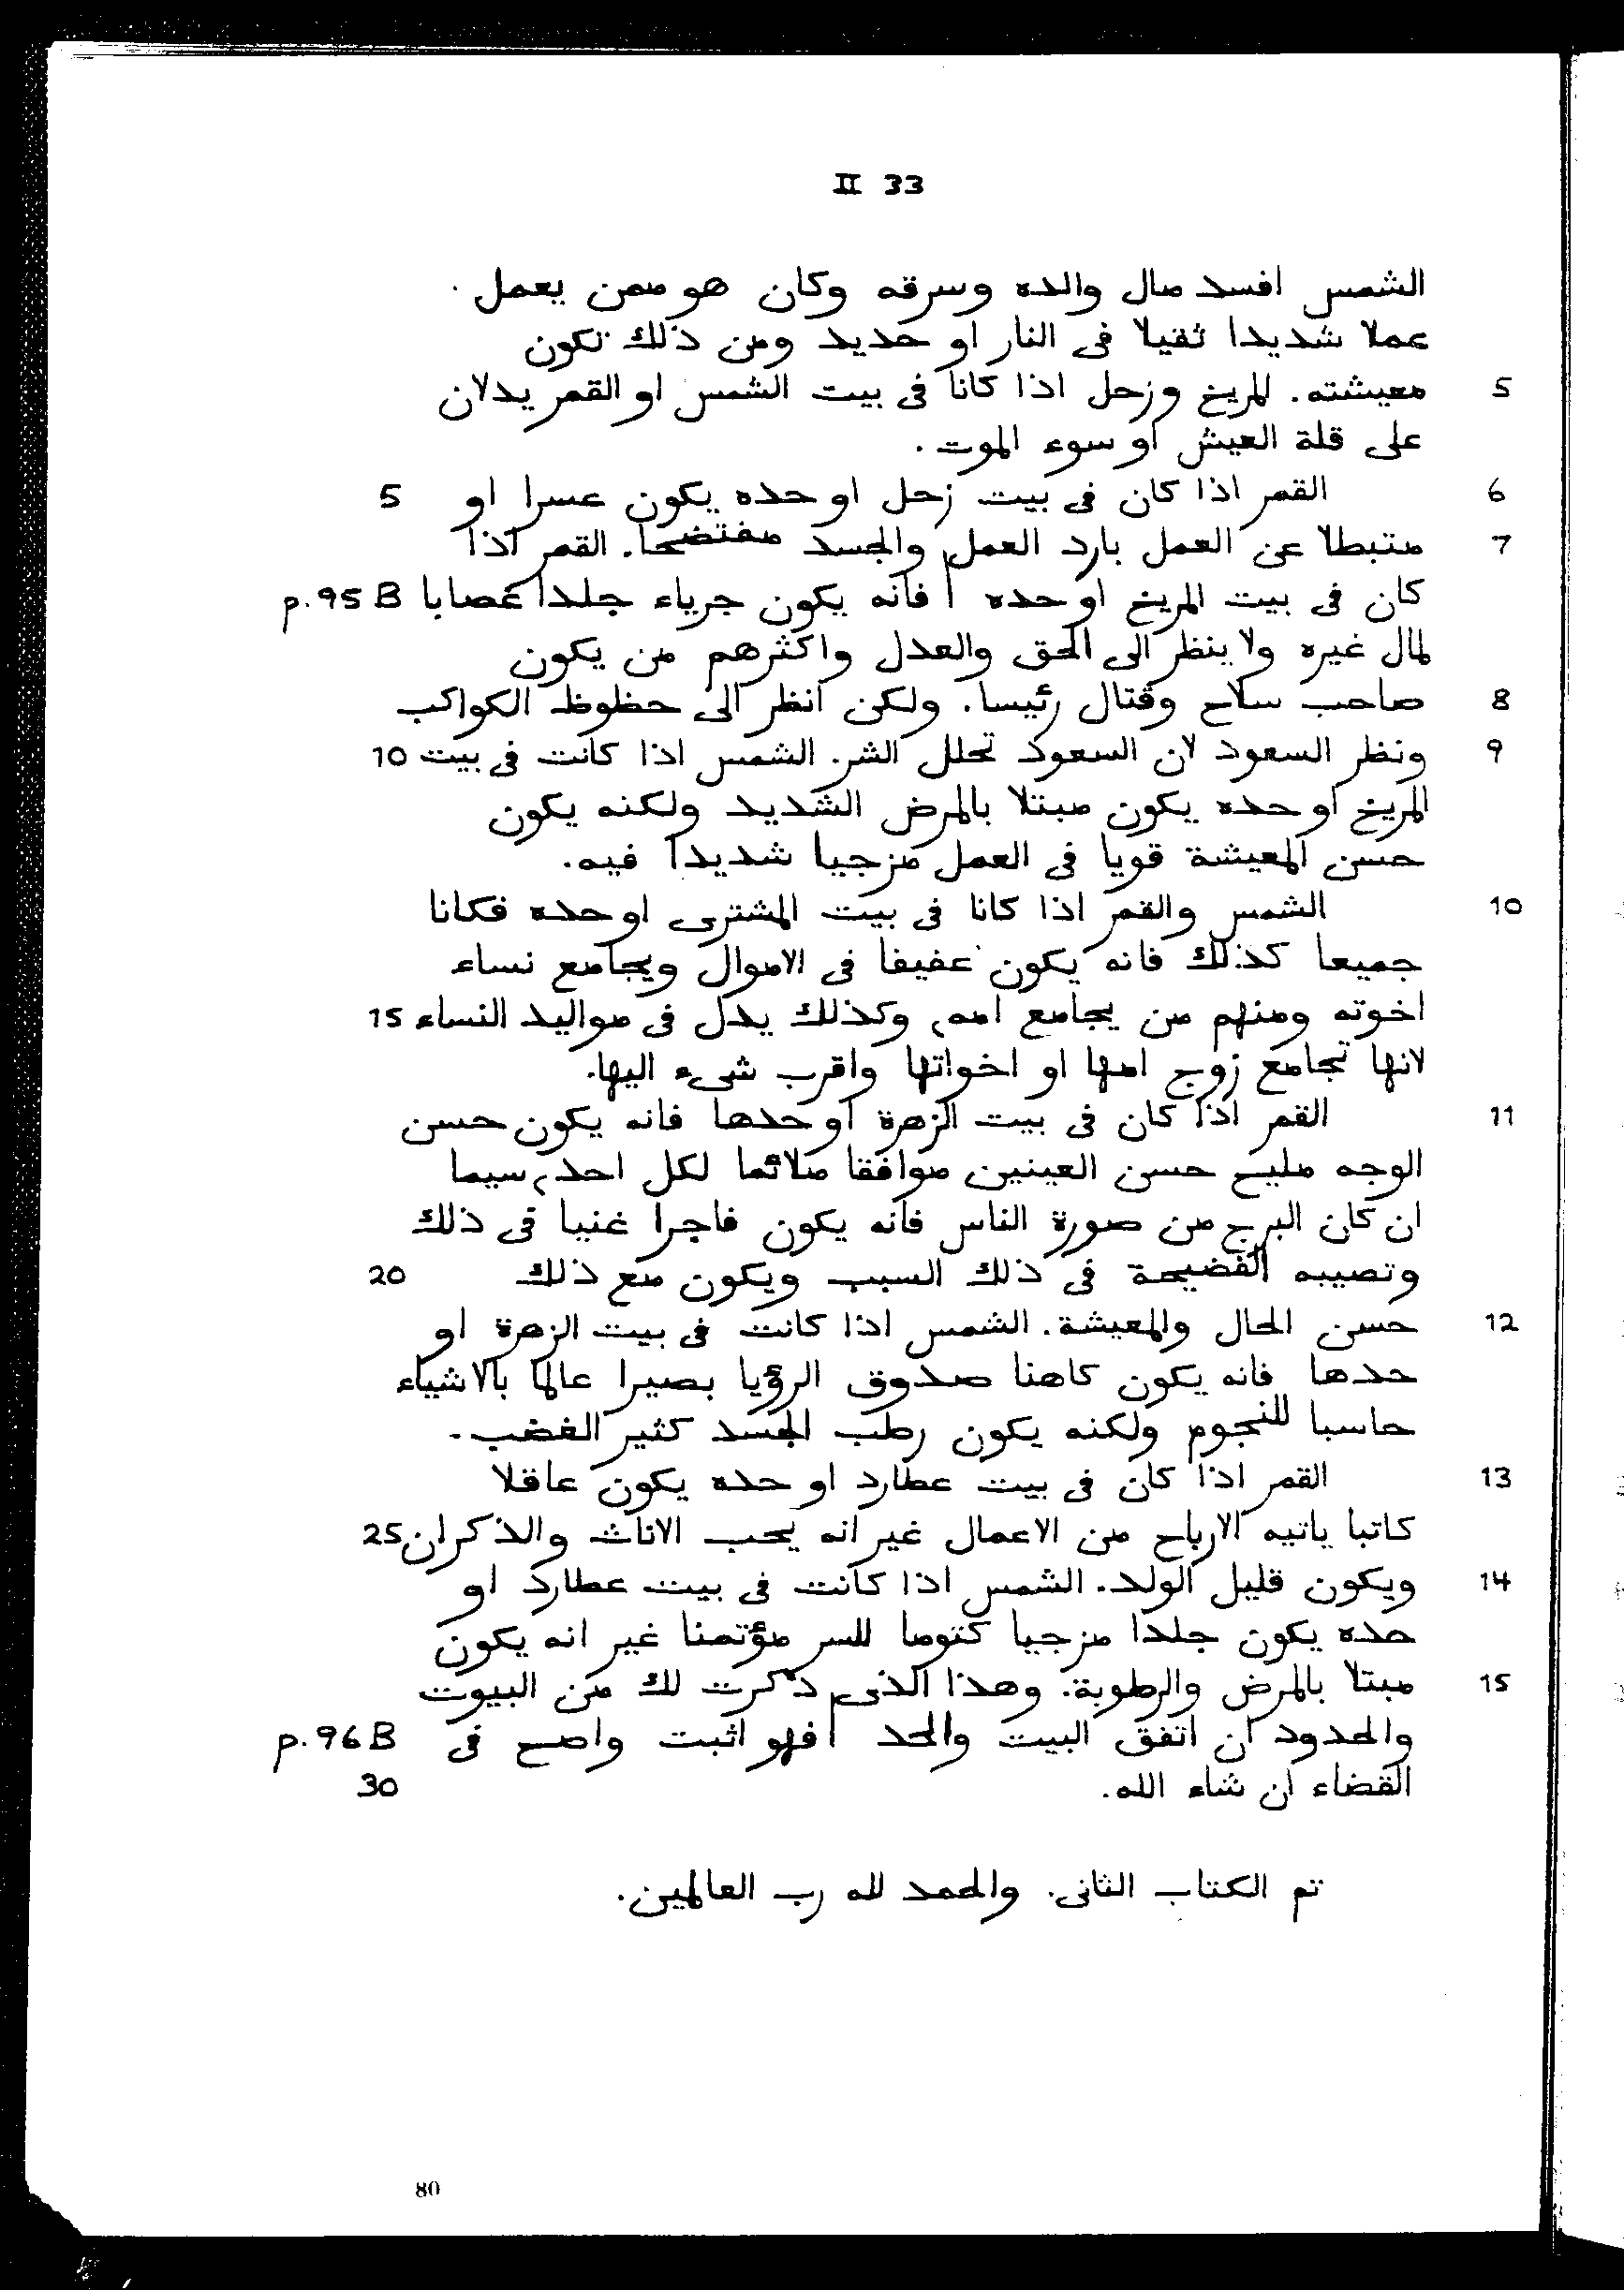 II 33
الشمس افسد مال والده وسرقه وكان هو ممن يعمل
عملا شديدا ثقيلا فى النار او حديد ومن ذلك تكون
5 معيشته. المريخ وزحل اذا كانا فى بيت الشمس او القمر يدلان
على قلة العيش او سوء الموت.
6 القمر اذا كان فى بيت زحل او حده يكون عسرا او 5
7 متبطلا عن العمل بارد العمل والجسد مفتضحا. القمر اذا
كان فى بيت المريخ او حده | فانه يكون جرياء جلدا غصابا p.95 B
لمال غيره ولا ينظر الى الحق والعدل واكثرهم من يكون
8 صاحب سلاح وقتال رئيسا. ولكن انظر الى حظوظ الكواكب
9 ونظر السعود لان السعود تحلل الشر. الشمس اذا كانت فى بيت 10
المريخ او حده يكون مبتلا بالمرض الشديد ولكنه يكون
حسن المعيشة قويا فى العمل مزجيا شديدا فيه.
10 الشمس والقمر اذا كانا فى بيت المشترى او حده فكانا
جميعا كذلك فانه يكون عفيفا فى الاموال ويجامع نساء
اخوته ومنهم من يجامع امه، وكذلك يدل فى مواليد النساء 15
لانها تجامع زوج امها او اخواتها واقرب شىء اليها.
11 القمر اذا كان فى بيت الزهرة او حدها فانه يكون حسن
الوجه مليح حسن العينين موافقا ملائما لكل احد، سيما
ان كان البرج من صورة الناس فانه يكون فاجرا غنيا فى ذلك
وتصيبه الفضيحة فى ذلك السبب ويكون مع ذلك 20
12 حسن الحال والمعيشة. الشمس اذا كانت فى بيت الزهرة او
حدها فانه يكون كاهنا صدوق الرؤيا بصيرا عالما بالاشياء
حاسبا للنجوم ولكنه يكون رطب الجسد كثير الغضب.
13 القمر اذا كان فى بيت عطارد او حده يكون عاقلا
كاتبا ياتيه الارباح من الاعمال غير انه يحب الاناث والذكران 25
14 ويكون قليل الولد. الشمس اذا كانت فى بيت عطارد او
حده يكون جلدا مزجيا كتوما للسر مؤتمنا غير انه يكون
15 مبتلا بالمرض والرطوبة. وهذا الذى ذكرت لك من البيوت
والحدود ان اتفق البيت والحد | فهو اثبت واصح فى p.96 B
القضاء ان شاء الله. 30
تم الكتاب الثانى. والحمد لله رب العالمين.
80